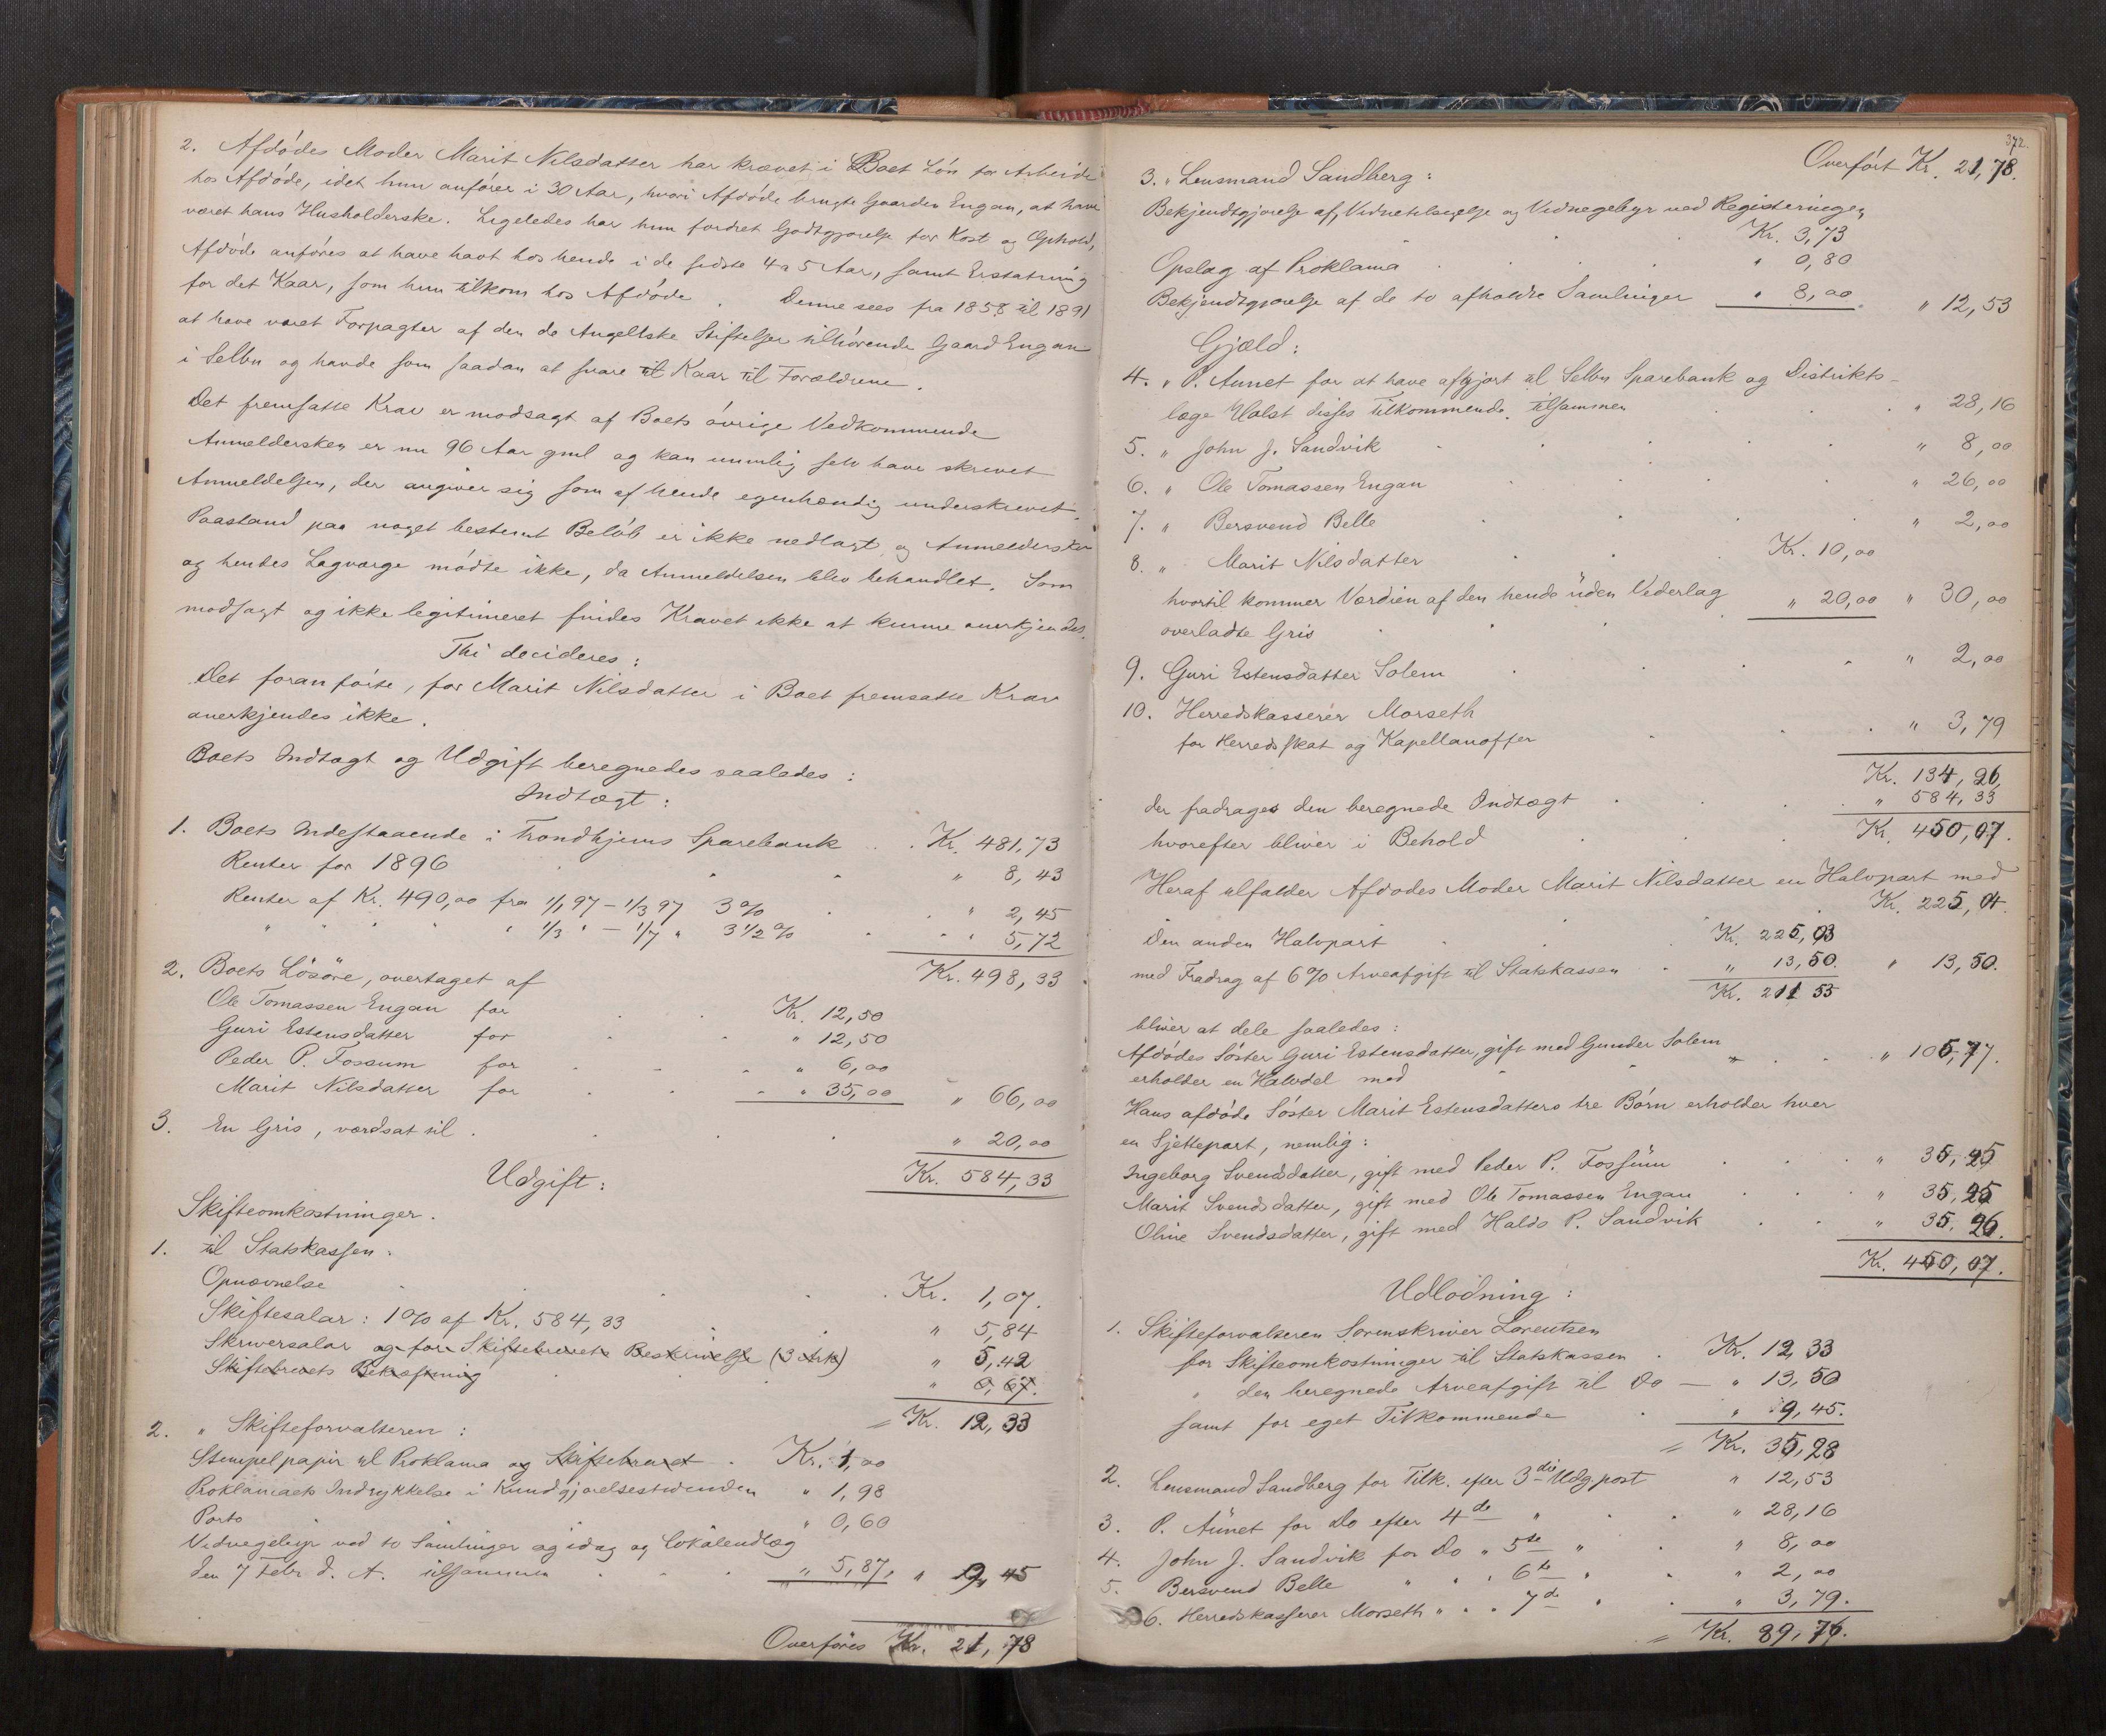 2. Afdódes Moder Marit Nilsdatter har krævet i Boet Lón for Arbeide
hos Afdóde, idet hun anfórer i 30 Aar, hvori Afdóde brugte Gaarden Engan, at have
været hans Husholderske. Ligeledes har hun fordret Godtgjorelse for Kost og Ophold,
Afdóde anfóres at have havt hos hende i de sidste 4 a 5 Aar, samt Erstatning
for det Kaar, som hun tilkom hos Afdóde. Denne sees fra 1858 til 1891
at have været Forpagter af den de Angellske Stiftelser tilhórende Gaard Engan
i Selbu og havde som saadan at svare til Kaar til Forældrene.
Det fremsatte Krav er modsagt af Boets óvrige Vedkommende
Anmeldersken er nu 96 Aar gml og kan umulig selv have skrevet
Anmeldelsen, der angiver sig som af hende egenhændig underskrevet.
Paastand paa noget bestemt Belób er ikke nedlagt og Anmeldersken
og hendes Lagværge módte ikke, da Anmeldelsen blev behandlet. Som
modsagt og ikke legitimeret findes Kravet ikke at kunne anerkjendes.
Thi decideres:
Det foran fórte, for Marit Nilsdatter i Boet fremsatte Krav
anerkjendes ikke.
Boets Indtægt og Udgift beregnedes saaledes:
Indtægt:
1. Boets Indestaaende i Trondhjems Sparebank . . Kr. 481,73
Renter for 1896 " 8,43
Renter af Kr. 490,00 fra 1/1 97 – 1/3 97 3 % " 2,45
" " " " " 1/3 " – 1/7 " 3 1/2 % " 5,72
Kr. 498,33
2. Boets Lósóre, overtaget af
Ole Tomassen Engan for Kr. 12,50
Guri Estensdatter for " 12,50
Peder P. Fossum for " 6,00
Marit Nilsdatter for " 35,00 " 66,00
3. En Gris, værdsat til . " 20,00
Kr. 584,33
Udgift:
Skifteomkostninger.
1. til Statskassen:
Opnævnelse Kr. 1,07.
Skiftesalar: 1 % af Kr. 584,33 " 5,84
Skriversalar og for Skiftebrevets Beskrivelse (3 Ark) " 5,42
Skiftebrevets Bekræftning " 0,67.
= Kr. 12,33
2. " Skifteforvalteren:
Stempelpapir til Proklama og Skiftebrevet . Kr. 1,00
Proklamaets Indrykkelse i Kundgjorelsestidenden " 1,98
Porto " 0,60
Vidnegebyr ved to Samlinger og idag og Lokaleudlæg
den 7 Febr d. A. tilsammen " 5,87, " 9,45
Overfóres Kr. 21,78
372.
Overfórt Kr. 21,78.
3. " Lensmand Sandberg:
Bekjendtgjorelse af, Vidnetilsigelse og Vidnegebyr ved Registeringen
Kr. 3,73
Opslag af Proklama " 0,80
Bekjendtgjorelse af de to afholdte Samlinger " 8,00 " 12,53
Gjæld:
4. " P. Aunet for at have afgjort til Selbu Sparebank og Distrikts-
læge Halst disses Tilkommende, tilsammen " 28,16
5. " John J. Sandvik " 8,00
6. " Ole Tomassen Engan " 26,00
7. " Bersvend Belle " 2,00
8. " Marit Nilsdatter Kr. 10,00
hvortil kommer Værdien af den hende uden Vederlag " 20,00 " 30,00
overladte Gris
9. Guri Estensdatter Solem " 2,00
10. Herredskasserer Morseth
for Herredsskat og Kapellanoffer " 3,79
Kr. 134,26
der fradrages den beregnede Indtægt " 584,33
hvorefter bliver i Behold Kr. 450,07.
Heraf tilfalder Afdódes Moder Marit Nilsdatter en Halvpart med
Kr. 225,04.
Den anden Halvpart Kr. 225,03
med Fradrag af 6 % Arveafgift til Statskassen " 13,50. " 13,50.
Kr. 211 53
bliver at dele saaledes:
Afdódes Sóster Guri Estensdatter, gift med Gunder Solem
erholder en Halvdel med " 105,77.
Hans afdóde Sóster Marit Estensdatters tre Bórn erholder hver
en Sjettepart, nemlig:
Ingeborg Svendsdatter, gift med Peder P. Fossum " 35,25
Marit Svendsdatter, gift med Ole Tomassen Engan " 35,25
Oline Svendsdatter, gift med Haldo P. Sandvik " 35,26.
Kr. 450,07.
Udlodning:
1. Skifteforvalteren Sorenskriver Lorentzen
for Skifteomkostninger til Statskassen . Kr. 12,33
" den beregnede Arveafgift til Do — " 13,50
samt for eget Tilkommende " 9,45.
= Kr. 35,28
2. Lensmand Sandberg for Tilk. efter 3die Udg.post " 12,53
3. P. Aunet for Do efter 4de " " 28,16
4. John J. Sandvik for Do " 5te " " 8,00
5. Bersvend Belle " " " 6te " " 2,00
6. Herredskasserer Morseth " " " 7de " " 3,79.
= Kr. 89,76.